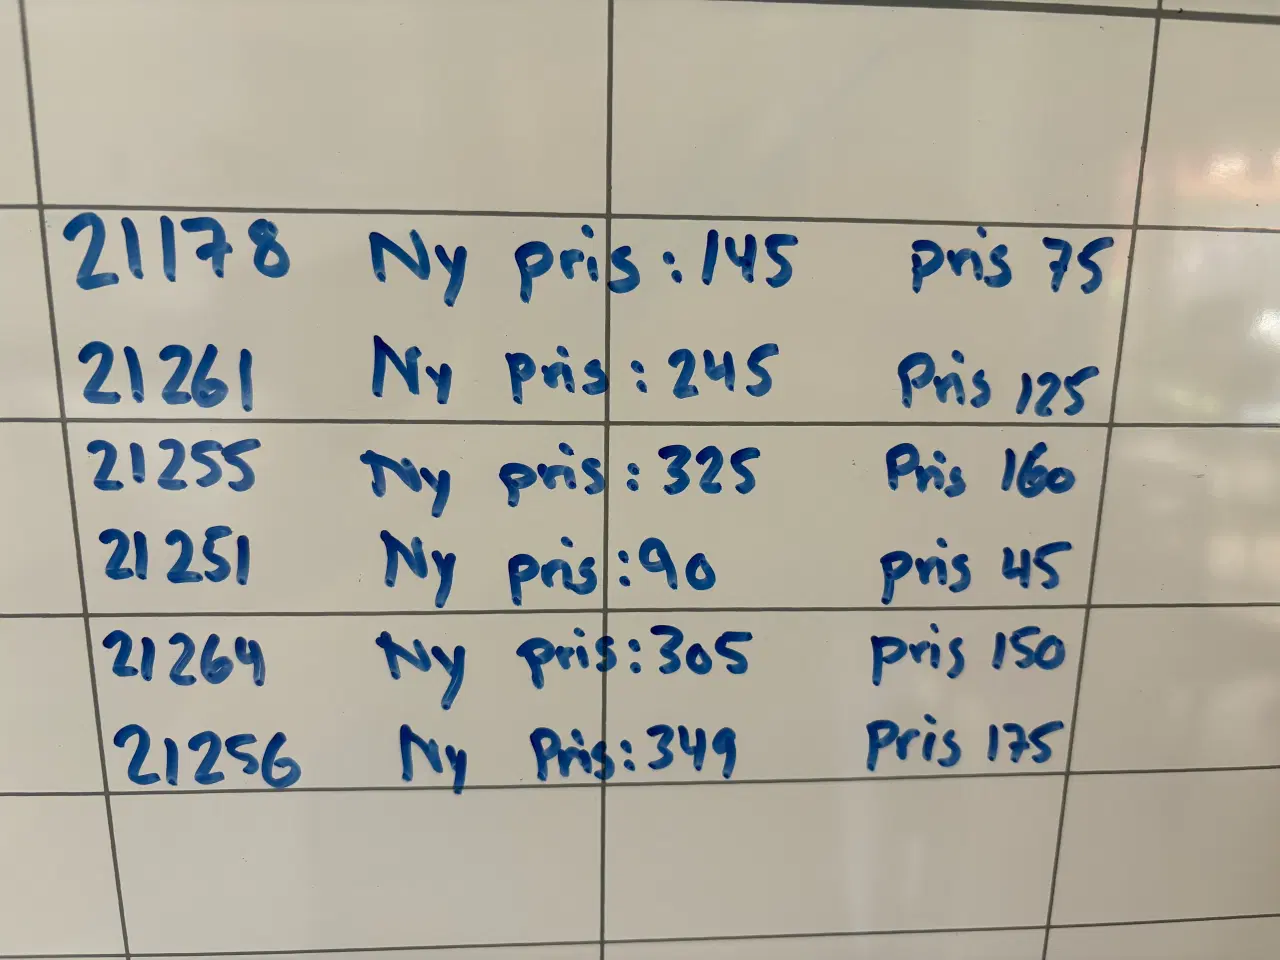 21178 Ny pris: 145 pris 75
21261 Ny pris: 245 Pris 125
21255 Ny pris: 325 Pris 160
21251 Ny pris: 90 pris 45
21264 Ny pris: 305 pris 150
21256 Ny Pris: 349 Pris 175